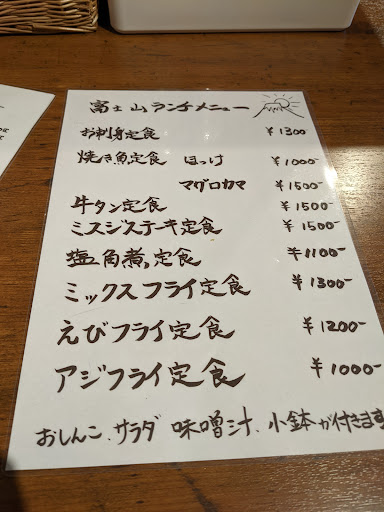 富士山ランチメニュー
お刺身定食 ¥1300
焼き魚定食 ほっけ ¥1000-
マグロカマ ¥1500-
牛タン定食 ¥1500-
ミスジステーキ定食 ¥1500-
塩角煮定食 ¥1100-
ミックスフライ定食 ¥1300-
えびフライ定食 ¥1200-
アジフライ定食 ¥1000-
おしんこ、サラダ 味噌汁、小鉢が付きます